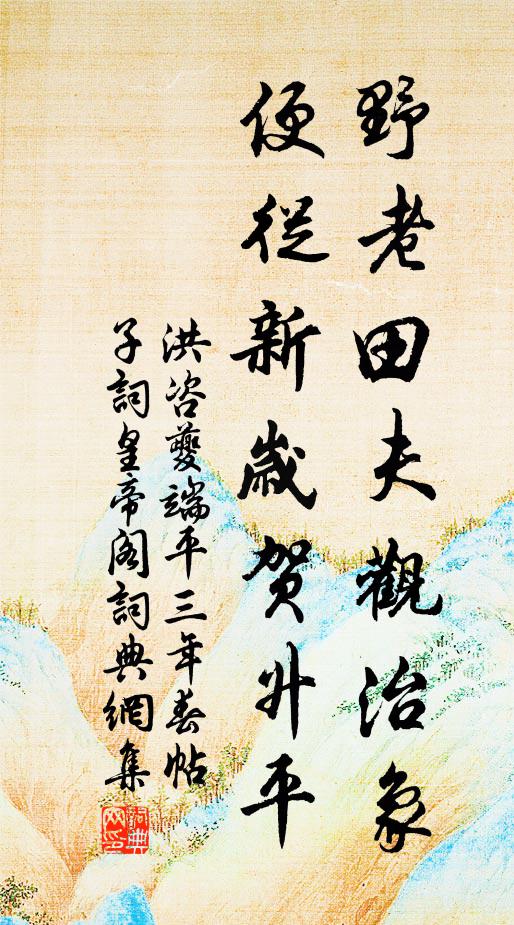 野老田夫觀治象
便從新歲賀升平
洪咨夔端平三年春帖
子詞皇帝閣詞典網集
詞典
网印